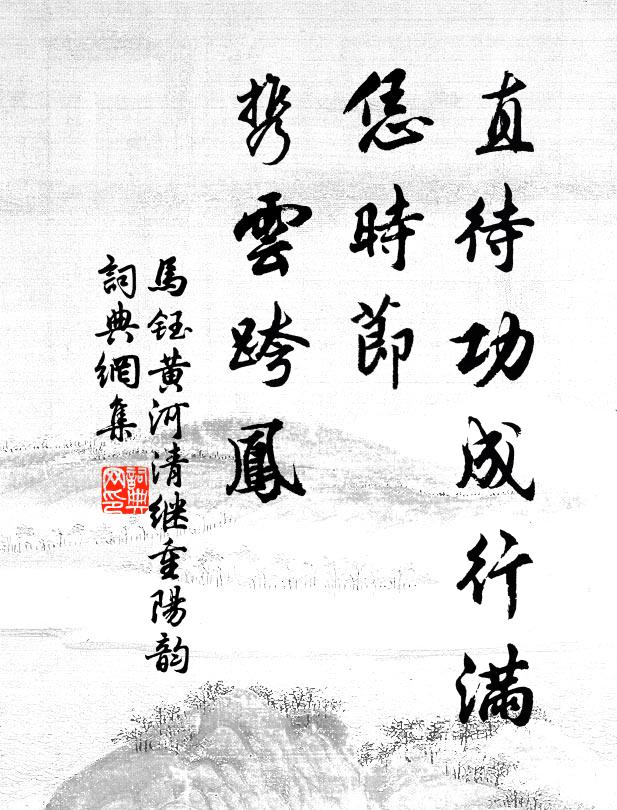 直待功成行滿
恁時節
携雲跨鳳
馬鈺黄河清继重陽韵
詞典網集
詞典
网印